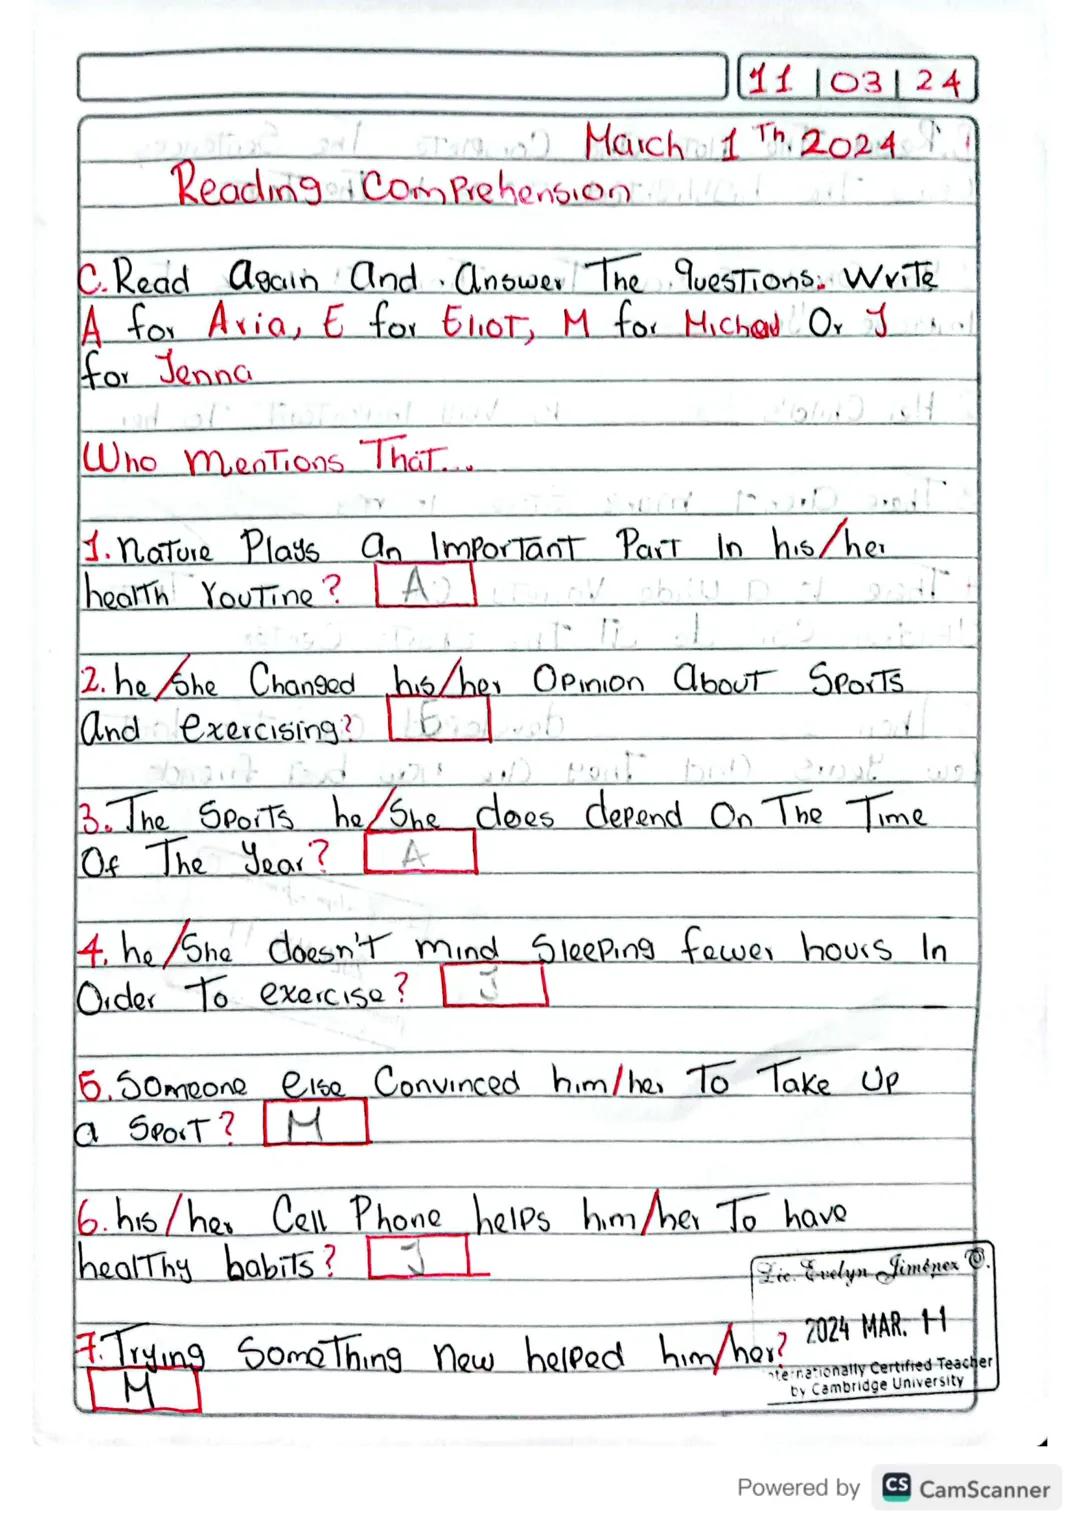 11 | 03 | 24
March 1 Th 2024
Reading Comprehension
C. Read Again And Answer The questions. Write
A for Aria, E for Eliot, M for Michael Or J
for Jenna
Who mentions That...
1. nature Plays an Important Part In his/her
health routine? A
2. he/She Changed his/her Opinion About Sports
And exercising? E
3. The Sports he/She does depend On The Time
Of The Year? A
4. he/She doesn't mind Sleeping fewer hours In
Order To exercise? J
5. Someone else Convinced him/her To Take Up
a Sport? M
6. his/her Cell Phone helps him/her To have
healthy habits? J
7. Trying Something new helped him/her?
M
Lic. Evelyn Jiménez O.
2024 MAR. 11
Internationally Certified Teacher
by Cambridge University
Powered by CS CamScanner